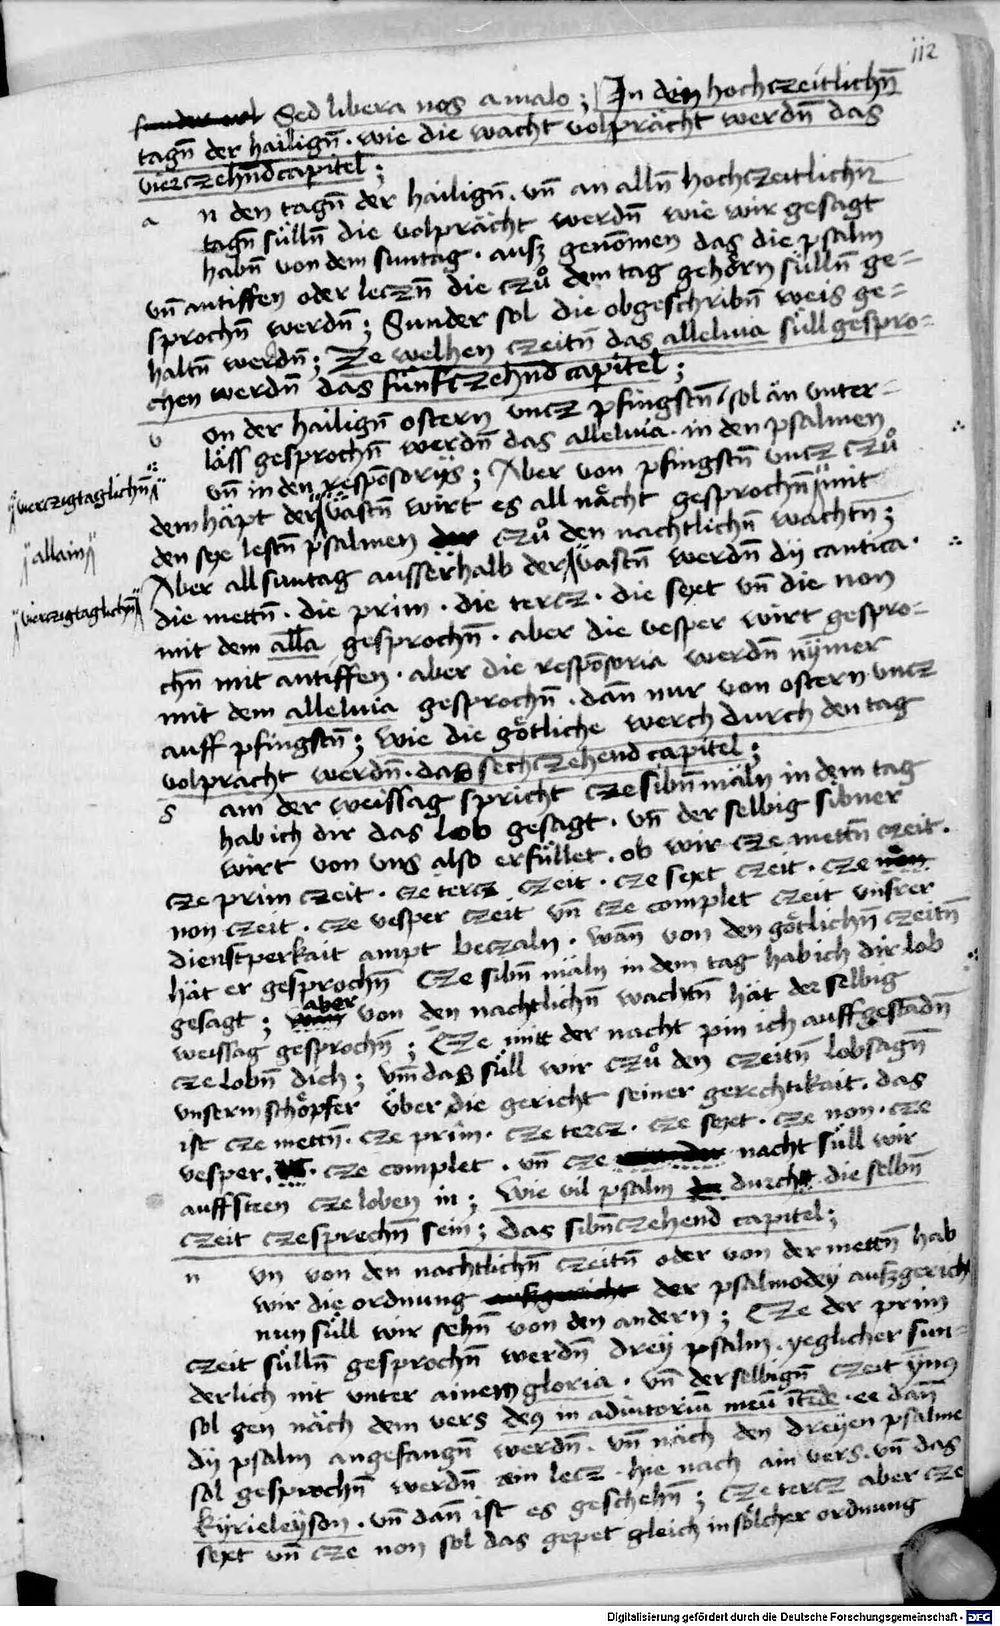 112
Sed libera nos a malo ; In den hochczeitlichn̄
tagn̄ der hailign̄ . wie die wacht volprächt werdn̄ das
vierczehn̄d capitel ;
a n den tagn̄ der hailign̄ . vn̄ an alln̄ hochczeitlichn̄
tagn̄ sülln̄ die volprächt werdn̄ wie wir gesagt
habn̄ von dem suntag . ausz genōmen das die psalm
vn̄ antiffen oder leczn̄ die czů dem tag gehörn sülln̄ ge=
sprochn̄ werdn̄ ; Sunder sol die obgeschribn̄ weis ge=
haltn̄ werdn̄ ; Ze welhen czeitn̄ das alleluia süll gespro=
chen werdn̄ das fünfczehnd capitel ;
v on der hailign̄ ostern vncz pfingstn̄ sol än vnter=
läss gesprochn̄ werdn̄ das alleluia . in den psalmen
vn̄ in den respōsorÿs ; Aber von pfingstn̄ vncz czů
vierczigtaglichn̄
dem häpt der vastn̄ wirt es all nächt gesprochn̄ mit
allain
den sex lestn̄ psalmen czů den nachtlichn̄ wachtn̄ ;
Aber all suntag ausserhalb der vastn̄ werdn̄ dÿ cantica .
vierzigtaglichn̄
die mettn̄ . die prim . die tercz . die sext vn̄ die non
mit dem all̄a gesprochn̄ . aber die vesper wirt gespro=
chn̄ mit antiffen . aber die respōsoria werdn̄ nÿmer
mit dem alleluia gesprochn̄ . dan̄ nur von ostern vncz
auff pfingstn̄ ; wie die götliche werch durch den tag
volpracht werdn̄ . das sechczehend capitel ;
s am der weissag spricht cze sibn̄ mäln in dem tag
hab ich dir das lob gesagt . vn̄ der selbig sibner
wirt von vns also erfüllet . ob wir cze mettn̄ czeit .
cze prim czeit . cze tercz czeit . cze sext czeit . cze non
non czeit . cze vesper czeit vn̄ cze complet czeit vnsrer
dienstperkait ampt beczaln . wan̄ von den götlichn̄ czeitn̄
hät er gesprochn̄ Cze sibn̄ mäln in dem tag hab ich dir lob
gesagt ; aber von den nachtlichn̄ wachtn̄ hät der selbig
weissag gesprochn̄ ; Cze mitt der nacht pin ich auffgestādn̄
cze lobn̄ dich ; vm̄ das süll wir czů den czeitn̄ lobsagn̄
vnserm schöpfer über die gericht seiner gerechtikait . das
ist cze mettn̄ . cze prim . cze tercz . cze sext . cze non . cze
vesper . cze complet . vn̄ cze nacht süll wir
auffsteen cze loben in ; Wie vil psalm durch die selbn̄
czeit cze sprechn̄ sein ; das sibn̄czehend capitel ;
n vn von den nachtlichn̄ czeitn̄ oder von der mettn̄ hab
wir die ordnung der psalmodey auszgericht
nun süll wir sehn̄ von den andern ; Cze der prim
czeit sülln̄ gesprochn̄ werdn̄ drey psalm . yeglicher sun=
derlich nit vnter ainem gloria . vn̄ der selbign̄ czeit ÿmꝰ
sol gen näch dem vers deꝰ in adiutoriū meū ītēde . ee dan̄
dÿ psalm angefangn̄ werdn̄ . vn̄ näch den dreyen psalme
sol gesprochn̄ werdn̄ ain lecz . hie nach ain vers . vn̄ das
kÿrieleÿson . vn̄ dan̄ ist es geschehn̄ ; Cze tercz aber cze
sext vn̄ cze non sol das gepet gleich in sölcher ordnung
Digitalisierung gefördert durch die Deutsche Forschungsgemeinschaft - DFG